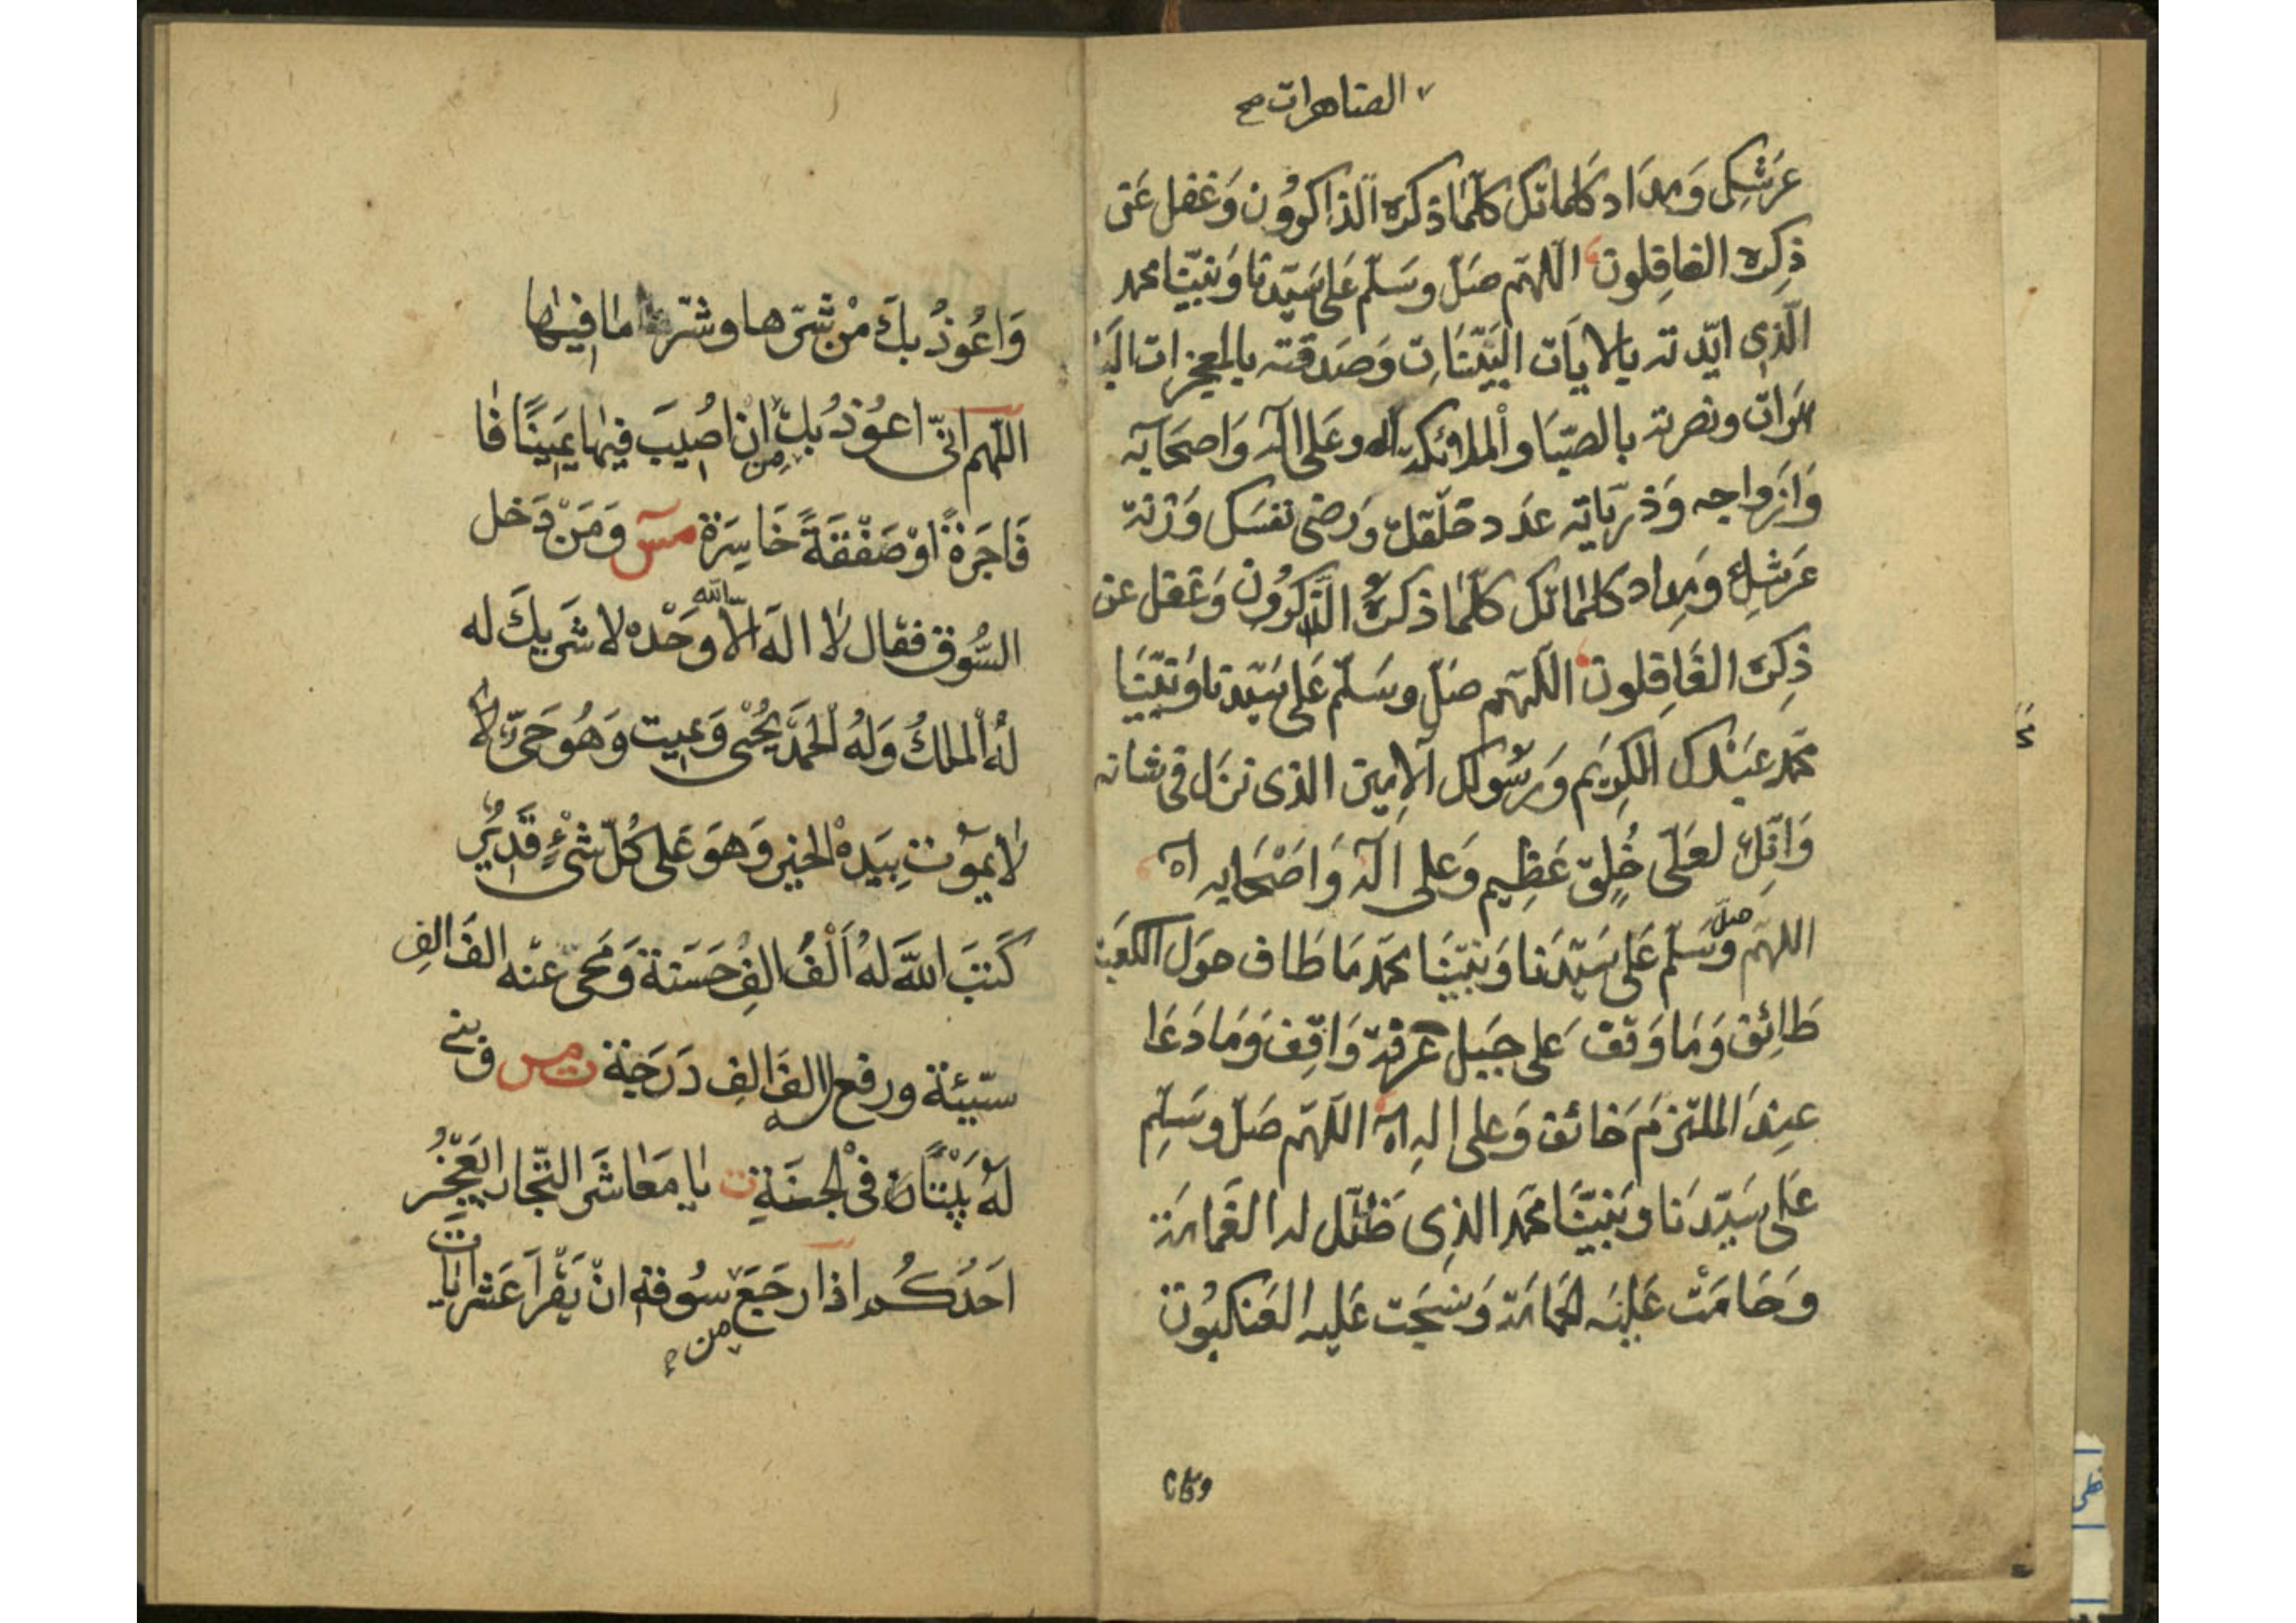 الصناهرات صح
عَرشِكَ وَمِدَاد كلماتك كلّما ذكره الذاكرُون وَغَفل عَن
ذِكِره الغافِلون اللّهم صَلّ وسَلّم عَلى سَيّدنا وَنبيّنا محمد
الّذي ايّدته بالايات البَيّنَات وَصَدقته بالمعجزات البا
هَرات ونصرته بالصّبَا والملائكة اله وعَلى اله وَاصحَابه
وَازواجه وَذرّياته عَدد خلقك وَرضى نفسَك وَزنة
عَرشِك وَمِداد كلماتك كلّما ذكرهُ الذّاكرُون وَغَفل عن
ذِكره الغَافِلون اللّهم صَلّ وسَلّم عَلى سَيّدنا وَنبيّنَا
محمّد عَبْدك الكرِيَم وَرسُولك الامِين الذى نزَل فى شانه
وَانّك لعَلى خُلِقٍ عَظِيم وَعلى اله وَاصْحَابه اه
اللهمّ صلّ وسَلّم عَلى سَيّدَنا وَنبيّنَا محمّد مَا طَاف حوَل الكعبَة
طَائِف وَمَا وَقفَ عَلى جَبَل عرفة وَاقِف وَمَا دَعَا
عِندَ الملتزمَ خائف وَعلى الهِ اه اللّهمّ صَلّ وسَلِّم
عَلى سَيّدَنا ونبَيّنَا محمّد الذِى ظلّل له الغَمامَة
وَحَامَتْ عَليَه الحمَامَة وَنسَجَت عَليه العَنكبُوت
وقا
وَاعُوذُ بكَ مْن شَرّها وشرّ ما فِيها
اللّهم انّى اعوُذُ بك مِن ان اصُيبَ فيها يَمينًا فا
فَاجَرَةً اوْ صَفْقَةً خَاسِرَة مس وَمَنْ دَخل
السُّوق فقال لا الهَ الّا الله وَحْده لا شَريكَ له
لهُ الملكُ وَلهُ الحَمدُ يُحْيى وَيميت وَهُو حَىّ لا
لا يموُت بِيَدهْ الخير وَهوَ عَلى كُلّ شَىْءٍ قَديُر
كَتبَ اللّهَ لهُ اَلْفَ الفِ حَسَنة وَمَحى عَنْه الفَ الفِ
سَيّئة ورفع له الفَ الفِ دَرَجَة ت مس ق وبنى
لهُ بَيْتًا فى الجنَةِ ت يا مَعَاشَر التّجار ايَعْجُز
احَدكُم اذا رجَعَ من سُوقه انْ يَقْرأ عَشر ايات